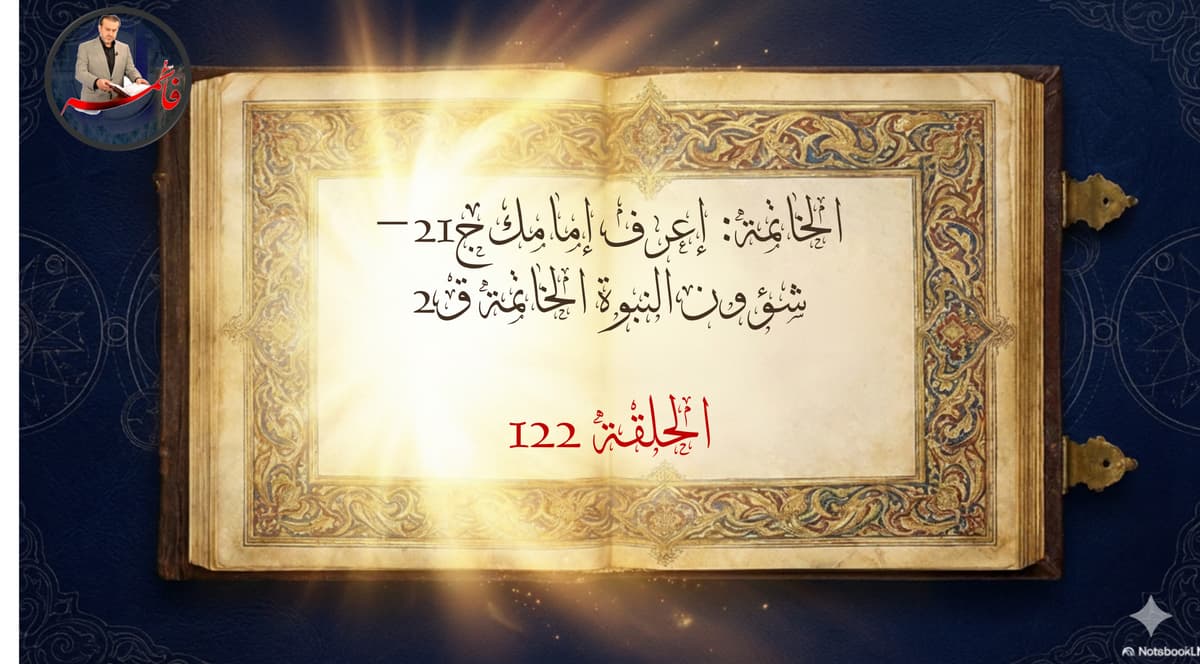 فاطمة
الخاتمة: إعرف إمامك ج21 –
شؤون النبوة الخاتمة ق2
الحلقة 122
NotebookL